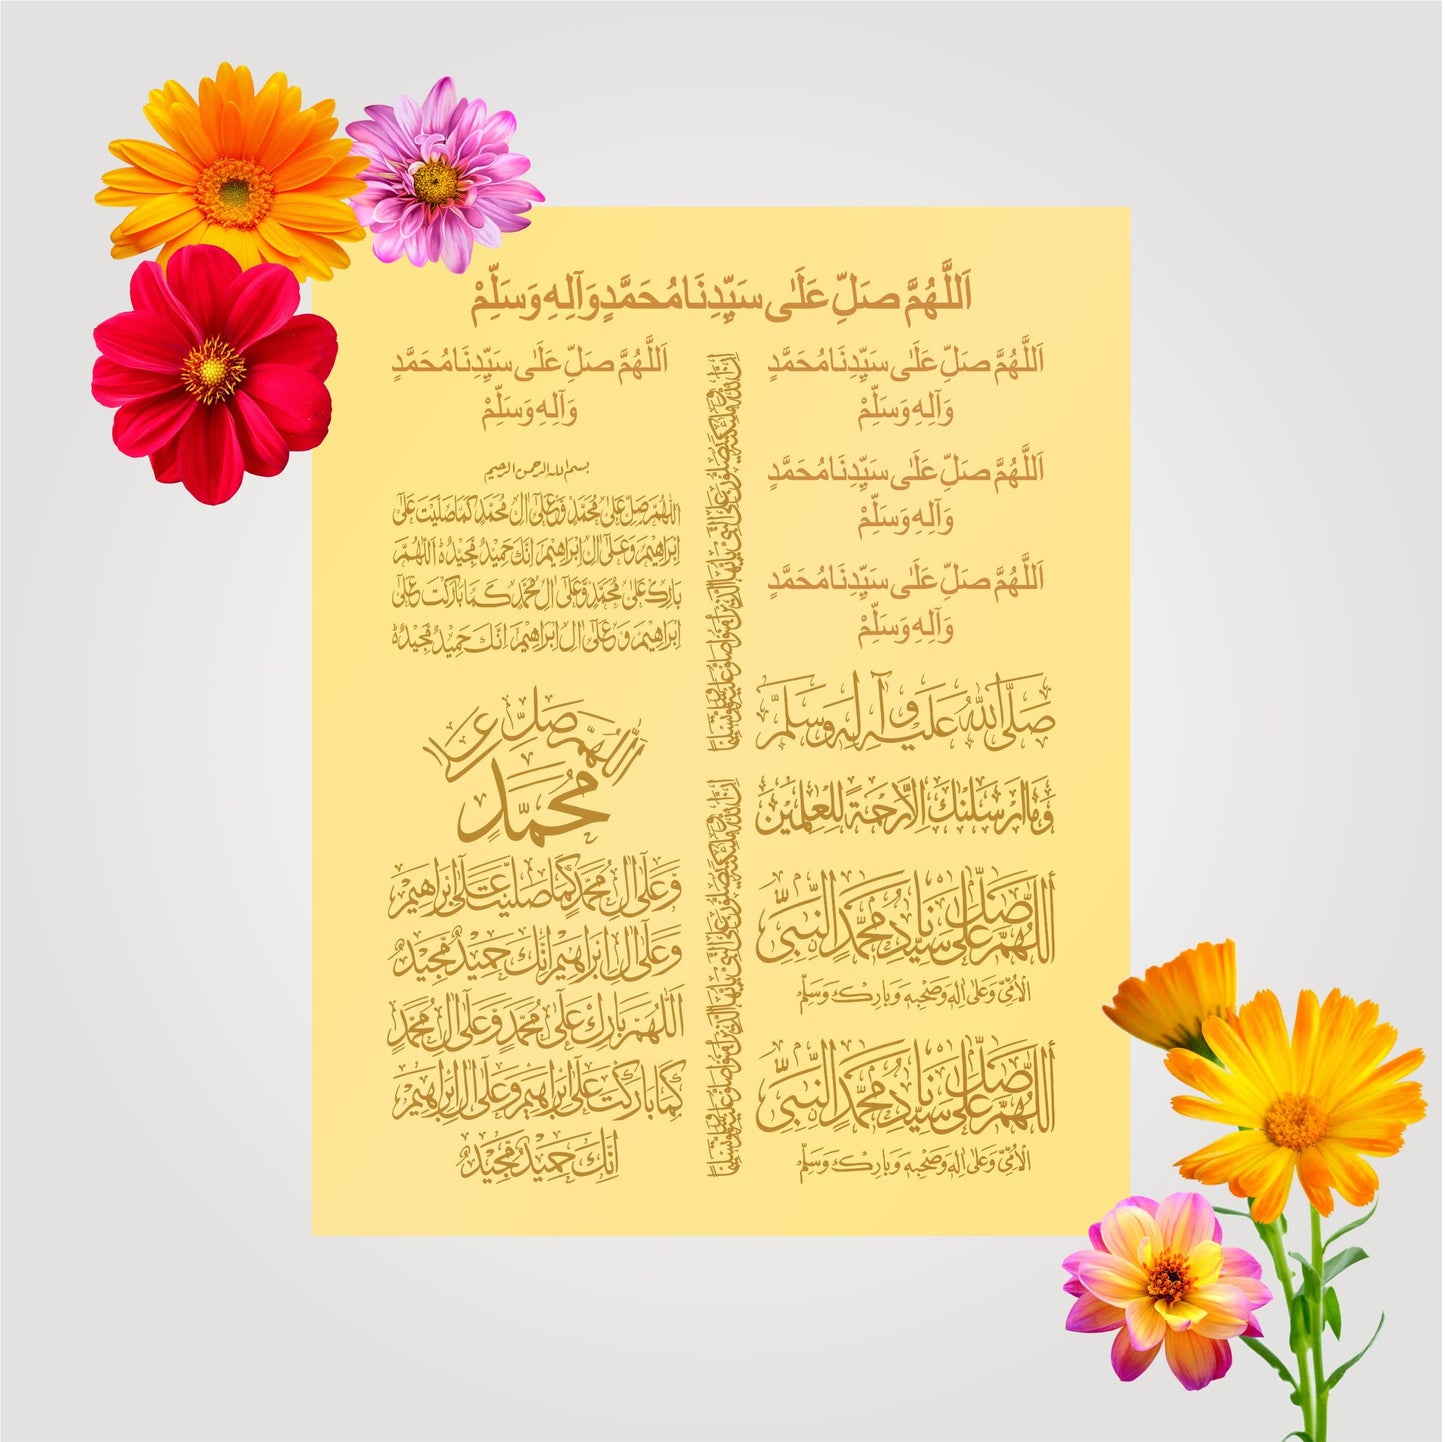 اَللّٰهُمَّ صَلِّ عَلٰى سَيِّدِنَا مُحَمَّدٍ وَآلِهِ وَسَلِّمْ
اَللّٰهُمَّ صَلِّ عَلٰى سَيِّدِنَا مُحَمَّدٍ
وَآلِهِ وَسَلِّمْ
اَللّٰهُمَّ صَلِّ عَلٰى سَيِّدِنَا مُحَمَّدٍ
وَآلِهِ وَسَلِّمْ
اَللّٰهُمَّ صَلِّ عَلٰى سَيِّدِنَا مُحَمَّدٍ
وَآلِهِ وَسَلِّمْ
صَلَّى اللهُ عَلَيْهِ وَآلِهِ وَسَلَّمَ
وَمَا أَرْسَلْنٰكَ إِلَّا رَحْمَةً لِّلْعٰلَمِيْنَ
أَللّٰهُمَّ صَلِّ عَلٰى سَيِّدِنَا مُحَمَّدٍ النَّبِيِّ
الْاُمِّيِّ وَعَلٰى اٰلِهٖ وَصَحْبِهٖ وَبَارِكْ وَسَلِّمْ
أَللّٰهُمَّ صَلِّ عَلٰى سَيِّدِنَا مُحَمَّدٍ النَّبِيِّ
الْاُمِّيِّ وَعَلٰى اٰلِهٖ وَصَحْبِهٖ وَبَارِكْ وَسَلِّمْ
اِنَّ اللهَ وَمَلٰئِكَتَهٗ يُصَلُّوْنَ عَلَى النَّبِيِّ يٰاَيُّهَا الَّذِيْنَ اٰمَنُوْا صَلُّوْا عَلَيْهِ وَسَلِّمُوْا تَسْلِيْمًا
اِنَّ اللهَ وَمَلٰئِكَتَهٗ يُصَلُّوْنَ عَلَى النَّبِيِّ يٰاَيُّهَا الَّذِيْنَ اٰمَنُوْا صَلُّوْا عَلَيْهِ وَسَلِّمُوْا تَسْلِيْمًا
اَللّٰهُمَّ صَلِّ عَلٰى سَيِّدِنَا مُحَمَّدٍ
وَآلِهِ وَسَلِّمْ
بسم الله الرحمن الرحيم
اَللّٰهُمَّ صَلِّ عَلٰى مُحَمَّدٍ وَّعَلٰى اٰلِ مُحَمَّدٍ كَمَا صَلَّيْتَ عَلٰى
اِبْرَاهِيْمَ وَعَلٰى اٰلِ اِبْرَاهِيْمَ اِنَّكَ حَمِيْدٌ مَّجِيْدٌ ۝ اَللّٰهُمَّ
بَارِكْ عَلٰى مُحَمَّدٍ وَّعَلٰى اٰلِ مُحَمَّدٍ كَمَا بَارَكْتَ عَلٰى
اِبْرَاهِيْمَ وَعَلٰى اٰلِ اِبْرَاهِيْمَ اِنَّكَ حَمِيْدٌ مَّجِيْدٌ ۝
اَللّٰهُمَّ صَلِّ عَلٰى
مُحَمَّدٍ
وَّعَلٰى اٰلِ مُحَمَّدٍ كَمَا صَلَّيْتَ عَلٰى اِبْرَاهِيْمَ
وَعَلٰى اٰلِ اِبْرَاهِيْمَ اِنَّكَ حَمِيْدٌ مَّجِيْدٌ
اَللّٰهُمَّ بَارِكْ عَلٰى مُحَمَّدٍ وَّعَلٰى اٰلِ مُحَمَّدٍ
كَمَا بَارَكْتَ عَلٰى اِبْرَاهِيْمَ وَعَلٰى اٰلِ اِبْرَاهِيْمَ
اِنَّكَ حَمِيْدٌ مَّجِيْدٌ